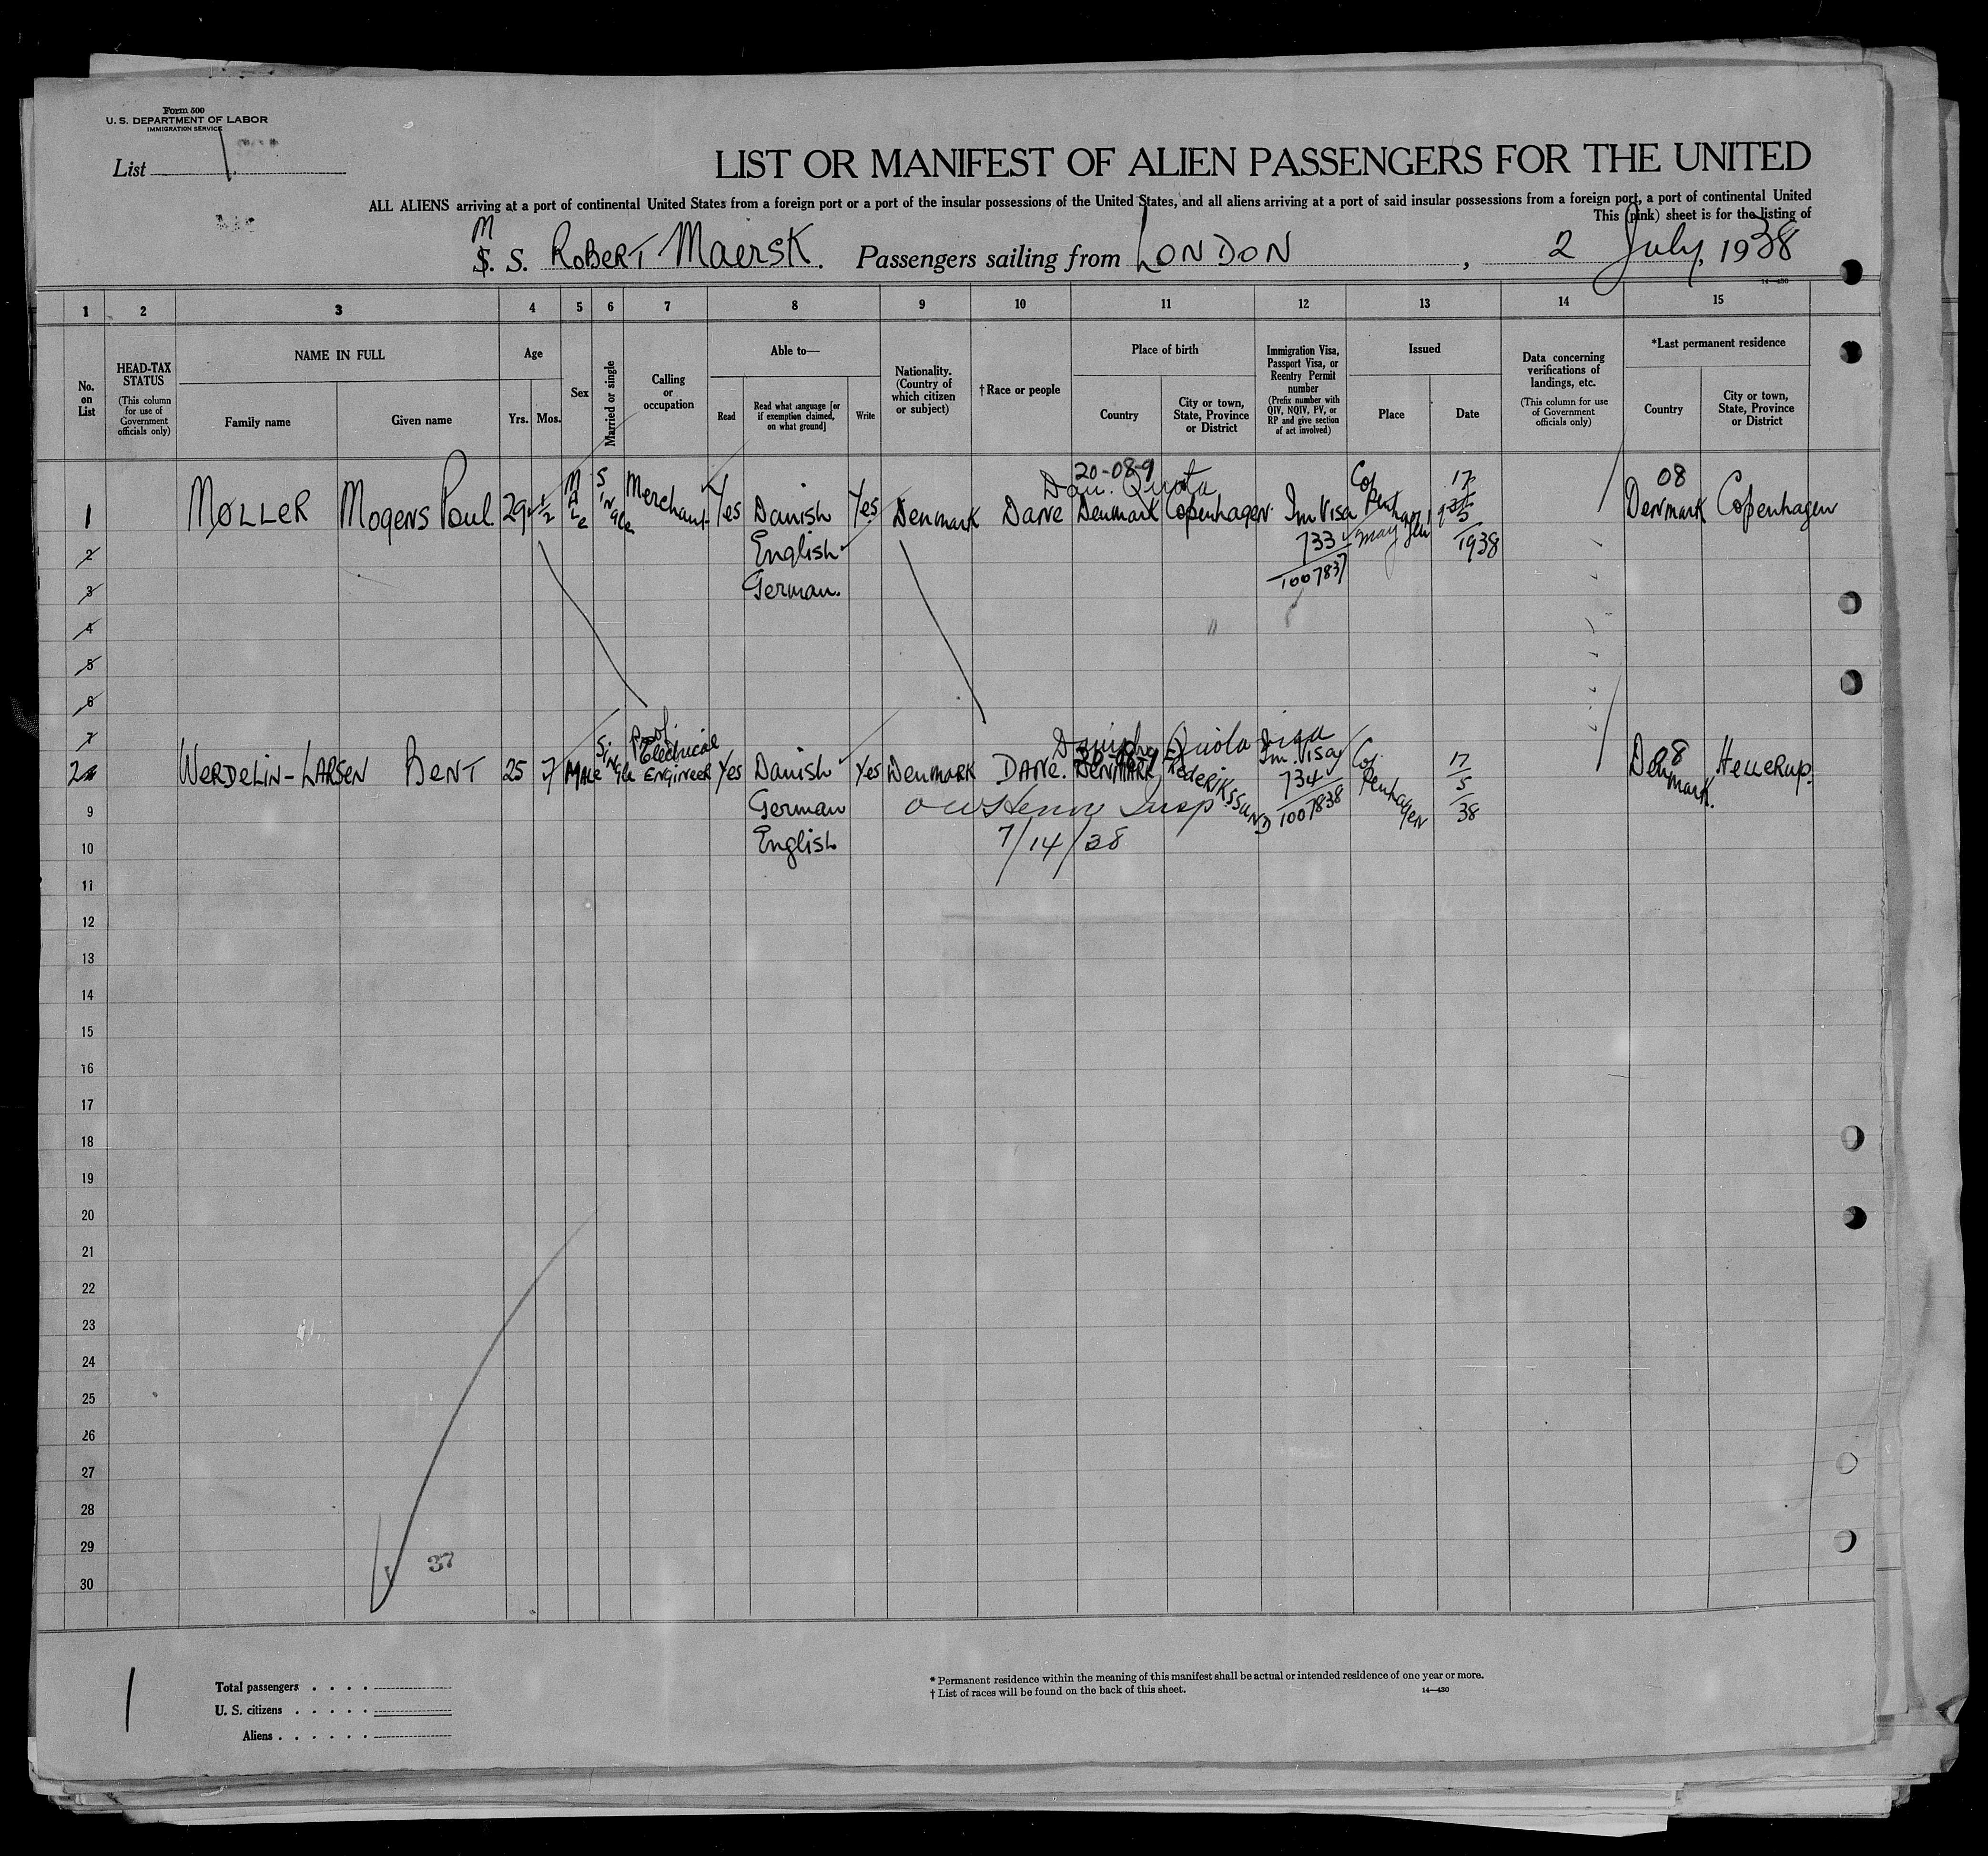 Form 500
U. S. DEPARTMENT OF LABOR
IMMIGRATION SERVICE
List 1
LIST OR MANIFEST OF ALIEN PASSENGERS FOR THE UNITED
ALL ALIENS arriving at a port of continental United States from a foreign port or a port of the insular possessions of the United States, and all aliens arriving at a port of said insular possessions from a foreign port, a port of continental United
This (pink) sheet is for the listing of
M
S. S. ROBERT MAERSK. Passengers sailing from LONDON, 2 July, 1938
14—430
1 2 3 4 5 6 7 8 9 10 11 12 13 14 15
No. on List
HEAD-TAX STATUS
(This column for use of Government officials only)
NAME IN FULL
Family name
Given name
Age
Yrs.
Mos.
Sex
Married or single
Calling or occupation
Able to—
Read
Read what language [or if exemption claimed, on what ground]
Write
Nationality. (Country of which citizen or subject)
†Race or people
Place of birth
Country
City or town, State, Province or District
Immigration Visa, Passport Visa, or Reentry Permit number
(Prefix number with QIV, NQIV, PV, or RP and give section of act involved)
Issued
Place
Date
Data concerning verifications of landings, etc.
(This column for use of Government officials only)
*Last permanent residence
Country
City or town, State, Province or District
20-08-9
Dan. Quota
08
1 MØLLER Mogens Poul 29 1/2 MALE Single Merchant Yes Danish Yes Denmark Dane Denmark Copenhagen Im Visa Copenhagen 17 Denmark Copenhagen
2 English 733 May 5 1938
3 German. 1007837
4
5
6
7
Prof. Danish Quota visa
20-08-9 08
2 WERDELIN-LARSEN BENT 25 7 MALE Single Electrical ENGINEER Yes Danish Yes Denmark DANE. DENMARK FREDERIKSSUND Im. Visa Copenhagen 17 Denmark. HELLERUP.
734 5
9 German Insp 1007838 38
10 English 7/14/38
11
12
13
14
15
16
17
18
19
20
21
22
23
24
25
26
27
28
29
37
30
1
Total passengers
U. S. citizens
Aliens
* Permanent residence within the meaning of this manifest shall be actual or intended residence of one year or more.
† List of races will be found on the back of this sheet.
14—430